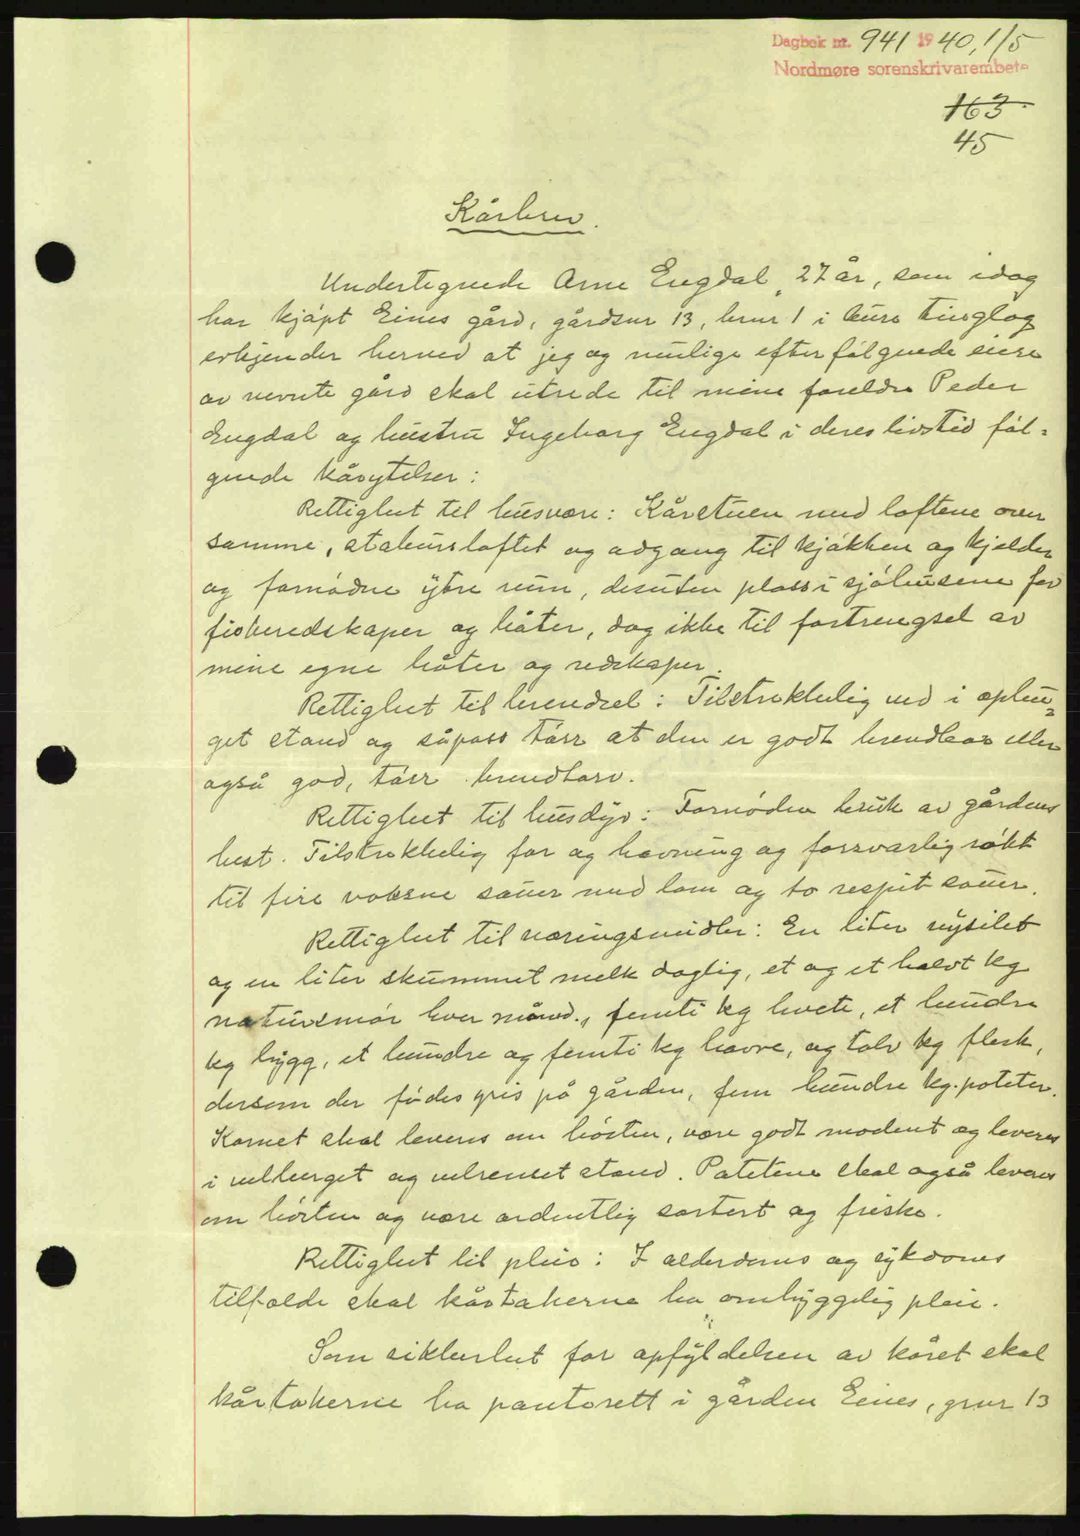 Dagbok nr. 941 1940, 1/5
Nordmøre sorenskrivarembete
163.
45
Kårbrev.
Undertegnede Arne Engdal, 27 år, som idag
har kjøpt Eines gård, gårdsnr 13, brnr 1 i Eure tinglag
erkjender herved at jeg og mulige efterfølgende eiere
av nevnte gård skal utrede til mine foreldre Peder
Engdal og hustru Ingeborg Engdal i deres livstid føl-
gende kårytelser:
Rettighet til husvære: Kårstuen med loftene over
samme, stabursloftet og adgang til kjøkken og kjelder
og fornødne ytre rum, desuten plass i sjøhusene for
fiskeredskaper og båter, dog ikke til fortrengsel av
mine egne båter og redskaper.
Rettighet til brendsel: Tilstrekkelig ved i ophug-
get stand og såpass tørr at den er godt brendbar eller
også god, tørr brendtorv.
Rettighet til husdyr: Fornøden bruk av gårdens
hest. Tilstrekkelig for og havning og forsvarlig røkt
til fire voksne sauer med lam og to respit sauer.
Rettighet til næringsmidler: En liter nysilet
og en liter skummet melk daglig, et og et halvt kg
natursmør hver måned., femti kg hvete, et hundre
kg bygg, et hundre og femti kg havre, og tolv kg flesk,
dersom der fødes gris på gården, fem hundre kg. poteter.
Kornet skal leveres om høsten, være godt modent og leveres
i velberget og velrenset stand. Potetene skal også leveres
om høsten og være ordentlig sortert og friske.
Rettighet til pleie: I alderdoms og sykdoms
tilfelde skal kårtakerne ha omhyggelig pleie.
Som sikkerhet for opfyldelsen av kåret skal
kårtakerne ha pantorett i gården Eines, grnr 13